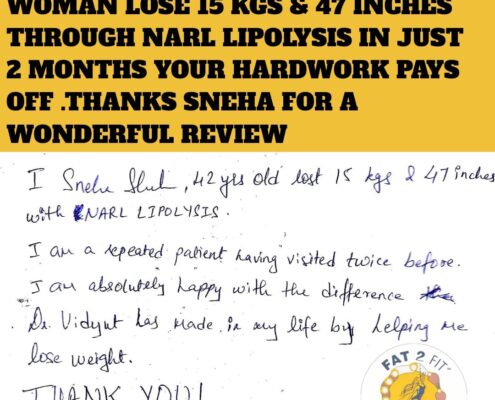 WOMAN LOSE 15 KGS & 47 INCHES
THROUGH NARL LIPOLYSIS IN JUST
2 MONTHS YOUR HARDWORK PAYS
OFF .THANKS SNEHA FOR A
WONDERFUL REVIEW
I Sneha , 42 yrs old lost 15 kgs & 47 inches
with NARL LIPOLYSIS.
I am a repeated patient having visited twice before.
I am absolutely happy with the difference
Dr. Vidyut has made in my life by helping me
lose weight.
THANK YOU!
FAT 2 FIT